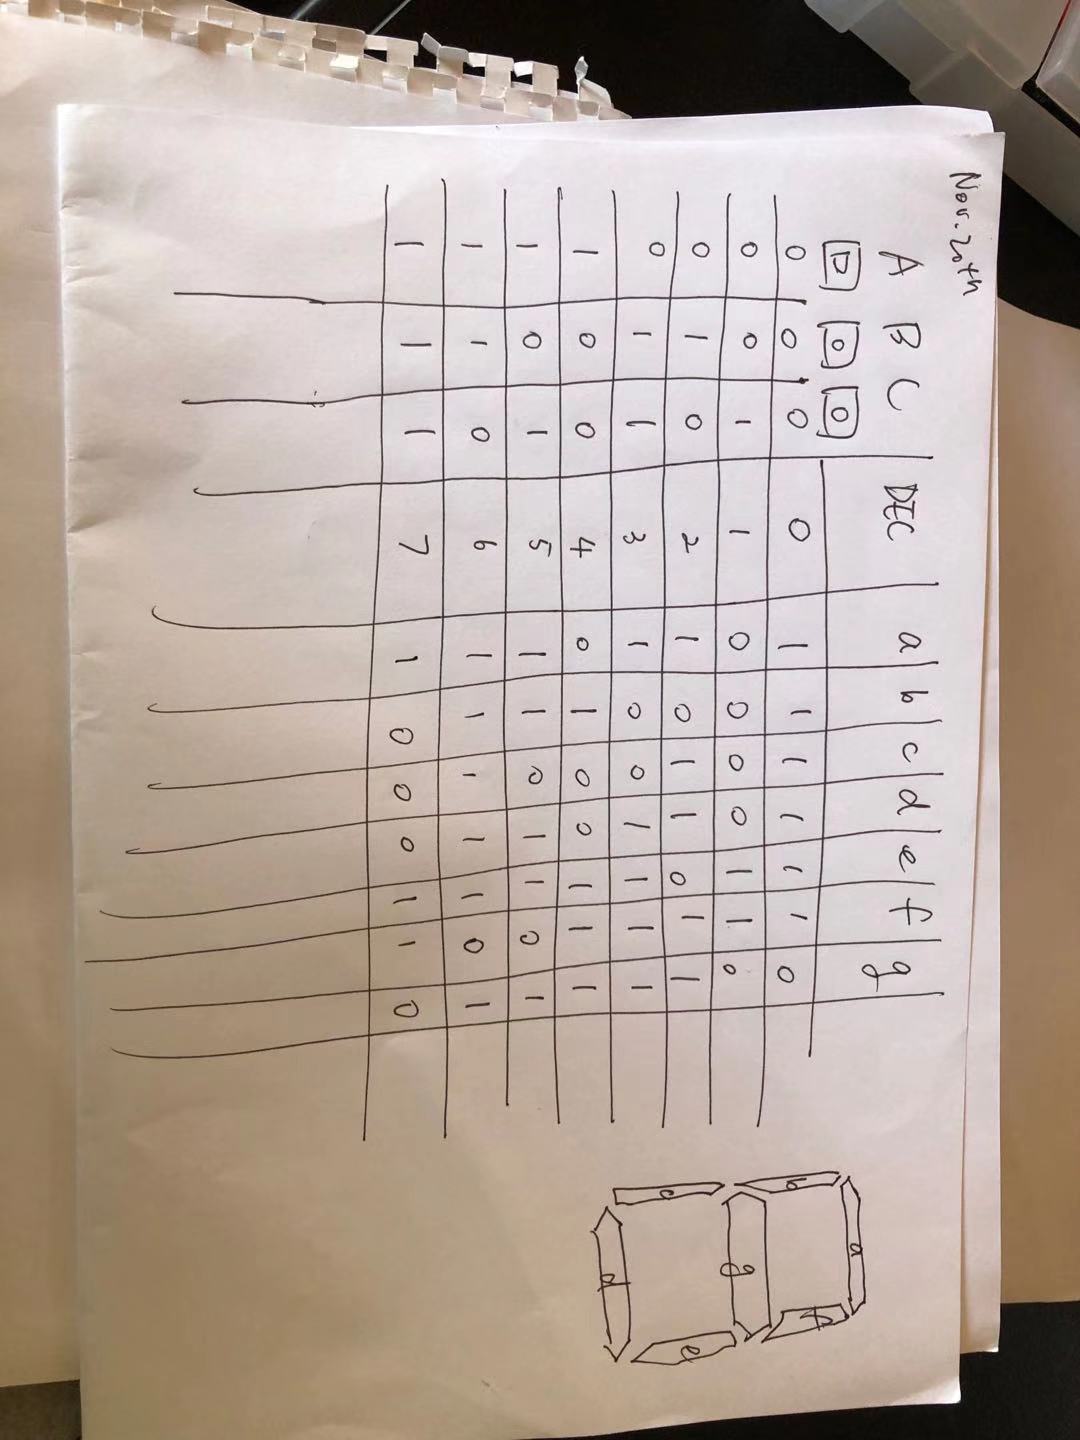 Nov. 20th
A B C DEC a b c d e f g
0 0 0
0 0 0 0 1 1 1 1 1 1 0
0 0 1 1 0 0 0 0 1 1 0
0 1 0 2 1 0 1 1 0 1 1
0 1 1 3 1 0 0 1 1 1 1
1 0 0 4 0 1 0 0 1 1 1
1 0 1 5 1 1 0 1 1 0 1
1 1 0 6 1 1 1 1 1 0 1
1 1 1 7 1 0 0 0 1 1 0
a
b f
g
c e
d